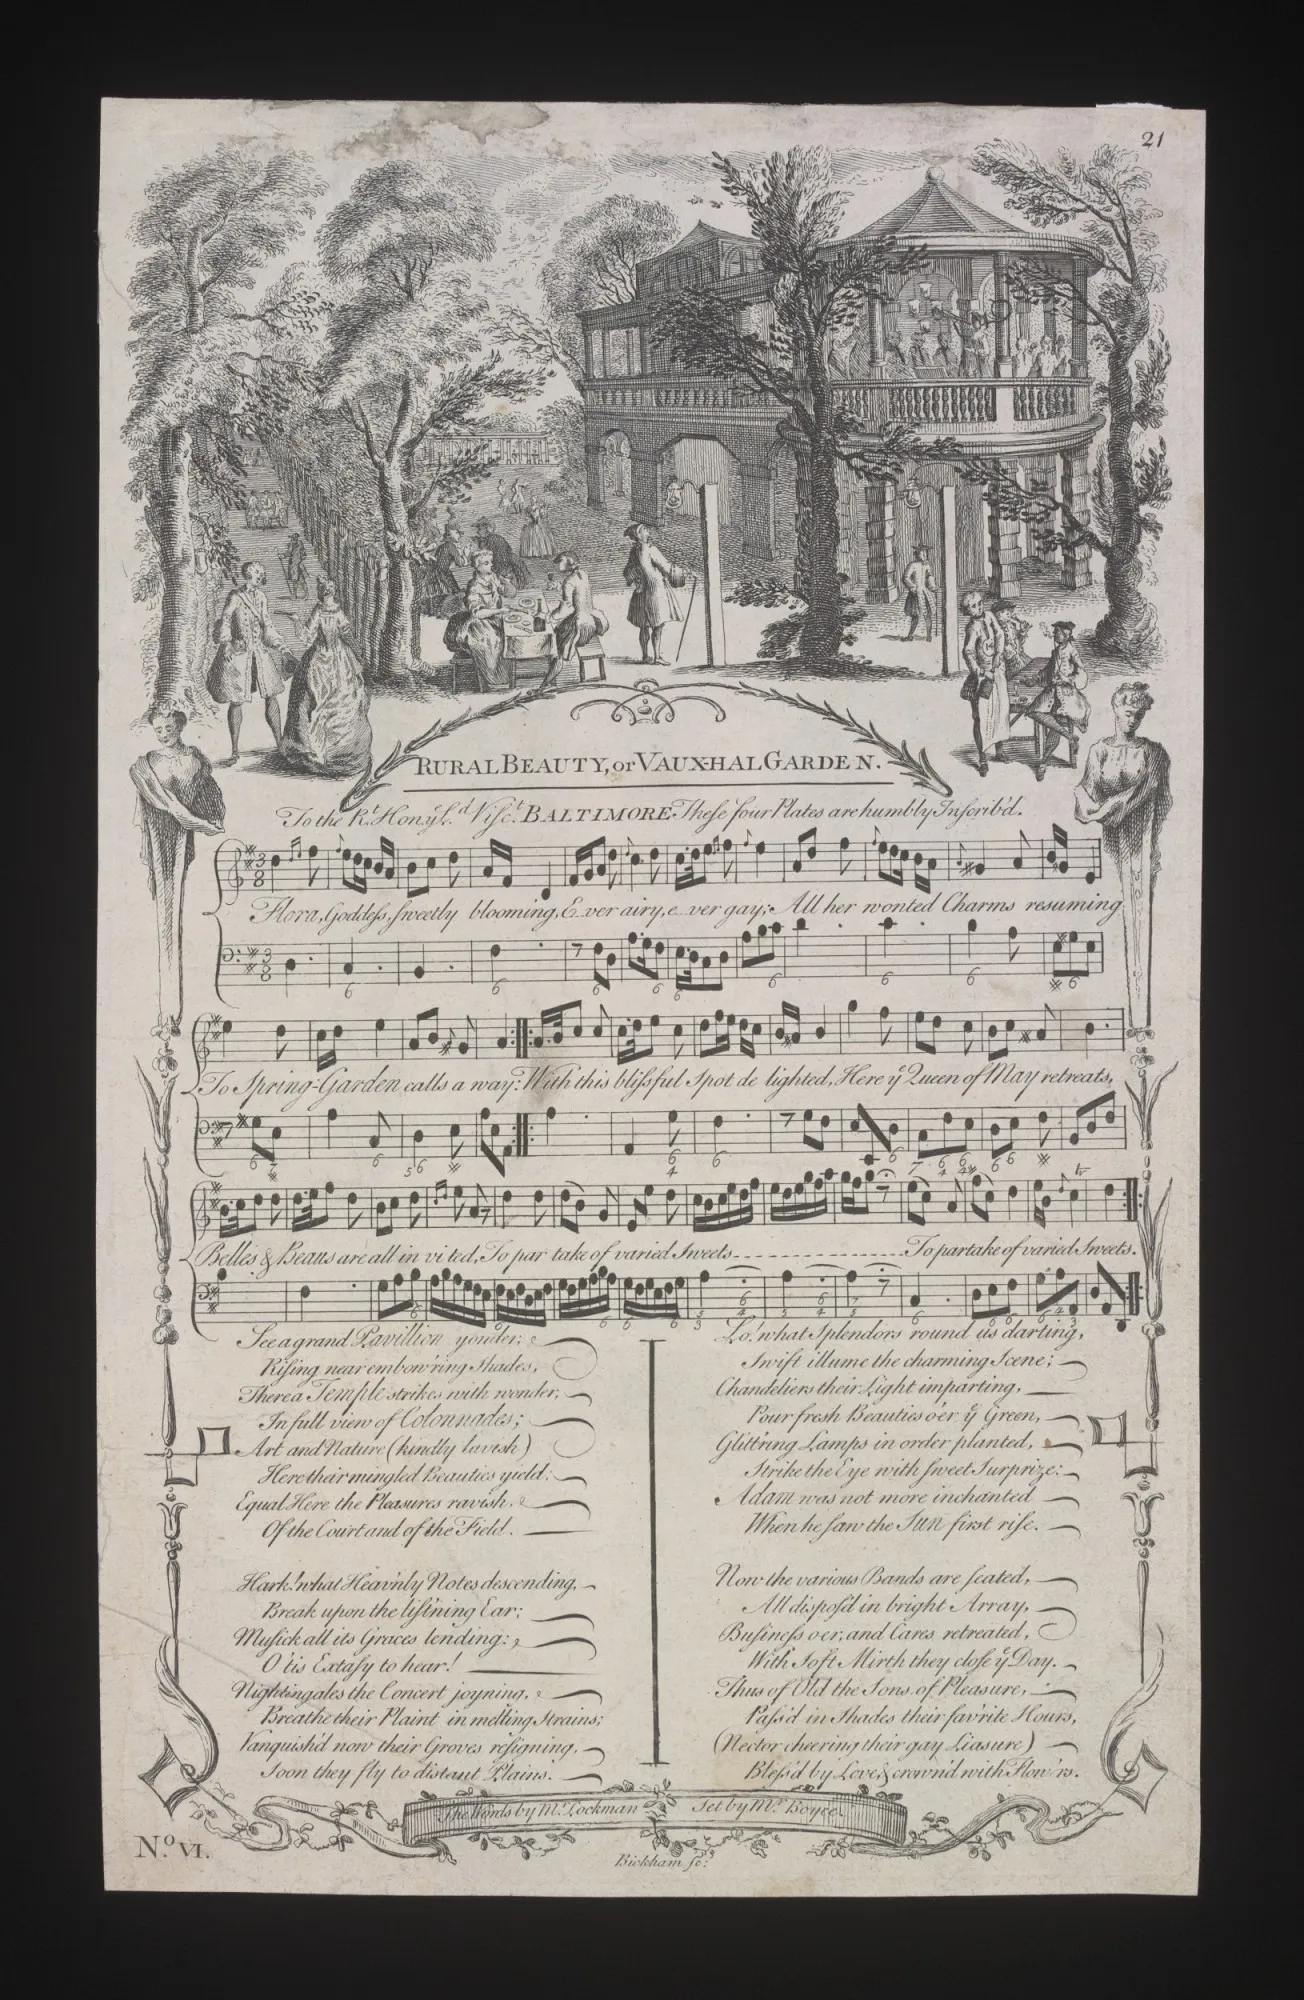 21
RURAL BEAUTY, or VAUXHAL GARDEN.
To the Rt. Honble. Ld. Visct. BALTIMORE These four Plates are humbly Inscrib'd.
Flora, Goddess, sweetly blooming, E_ver airy, e_ver gay; All her wonted Charms resuming
To Spring-Garden calls a way: With this blissful Spot de lighted, Here ye Queen of May retreats,
Belles & Beaus are all in vi ted, To par take of varied Sweets - - - - - - - - - - - - - To partake of varied Sweets.
See a grand Pavillion yonder;
Rising near embow'ring Shades,
There a Temple strikes with wonder,
In full view of Colonnades;
Art and Nature (kindly lavish)
Here their mingled Beauties yield:
Equal Here the Pleasures ravish,
Of the Court and of the Field.
Hark! what Heav'nly Notes descending,
Break upon the list'ning Ear;
Musick all its Graces lending:
O 'tis Extasy to hear!
Nightingales the Concert joyning,
Breathe their Plaint in melting Strains;
Vanquish'd now their Groves resigning,
Soon they fly to distant Plains.
Lo! what Splendors round us darting,
Swift illume the charming Scene;
Chandeliers their Light imparting,
Pour fresh Beauties o'er ye Green,
Glitt'ring Lamps in order planted,
Strike the Eye with sweet Surprize;
Adam was not more inchanted
When he saw the SUN first rise.
Now the various Bands are seated,
All dispos'd in bright Array,
Business o'er, and Cares retreated,
With Soft Mirth they close ye Day.
Thus of Old the Sons of Pleasure,
Pass'd in Shades their fav'rite Hours,
(Nector cheering their gay Liasure)
Bless'd by Love, & crown'd with Flow'rs.
The Words by Mr. Lockman Set by Mr. Boyce.
No. VI.
Bickham sc: